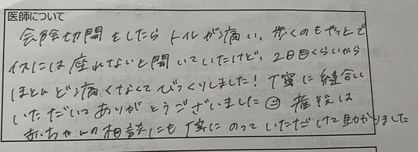 医師について
会陰切開をしたらトイレが痛い、歩くのもやっとで
イスには座れないと聞いていたけど、2日目くらいから
ほとんど痛くなくてびっくりしました！丁寧に縫合い
いただいてありがとうございました☺ 産後は
赤ちゃんの相談にも丁寧にのっていただけて助かりました